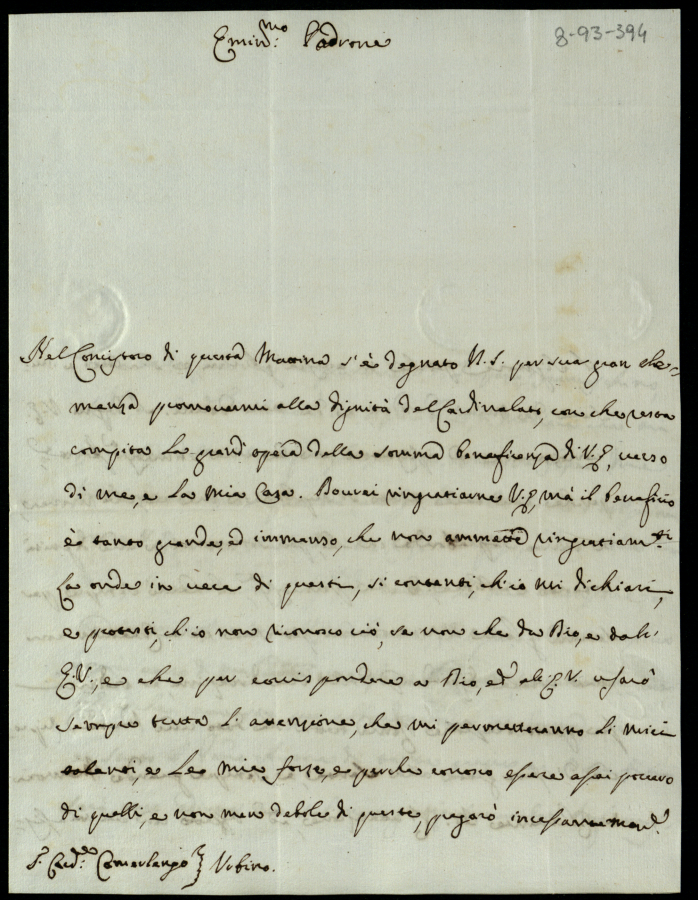 Emin.mo Padrone
8-93-394
Nel Concistoro di questa Mattina s'è degnato N. S. per sua gran cle-
menza promovermi alla dignità del Cardinalato, con che resta
compita la grand'opera della somma beneficenza di V. E. verso
di me, e la mia Casa. Dovrei ringratiarne V. E., mà il beneficio
è tanto grande, ed immenso, che non ammette ringratiam.ti
La onde in vece di questi, si contenti, ch'io mi dichiari,
e protesti, ch'io non riconosco ciò, se non che da Dio, e dall'
E. V., e che per corrispondere a Dio, ed all'E. V. usarò
sempre tutta l'attenzione, che mi permetteranno li miei
talenti, e le mie forze, e perche conosco essere assai povero
di quelli, e non men debole di queste, pregarò incessantemen.te
S.r Card.le Camerlengo Urbino.